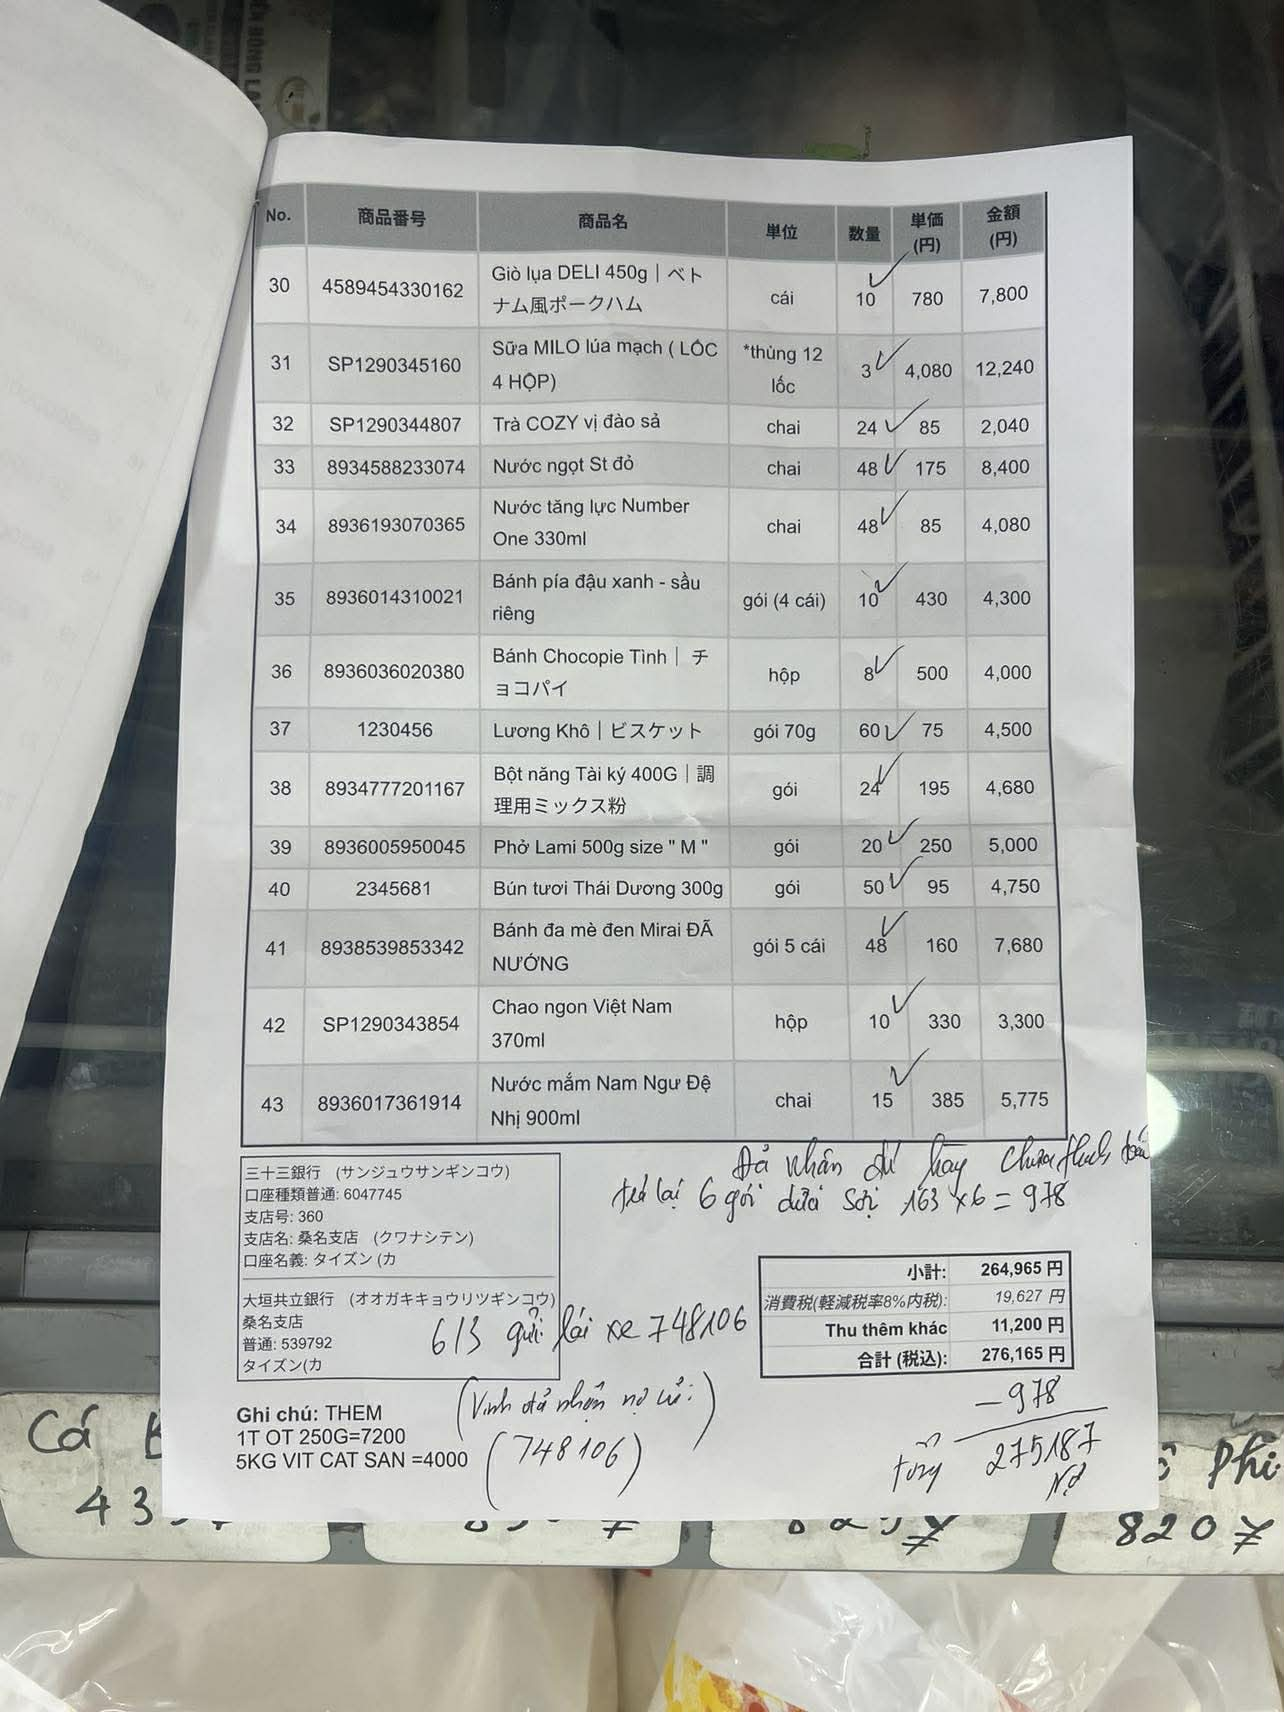 No. 商品番号 商品名 単位 数量 単価(円) 金額(円)
30 4589454330162 Giò lụa DELI 450g｜ベトナム風ポークハム cái 10 780 7,800
31 SP1290345160 Sữa MILO lúa mạch ( LỐC 4 HỘP) *thùng 12 lốc 3 4,080 12,240
32 SP1290344807 Trà COZY vị đào sả chai 24 85 2,040
33 8934588233074 Nước ngọt St đỏ chai 48 175 8,400
34 8936193070365 Nước tăng lực Number One 330ml chai 48 85 4,080
35 8936014310021 Bánh pía đậu xanh - sầu riêng gói (4 cái) 10 430 4,300
36 8936036020380 Bánh Chocopie Tình｜ チョコパイ hộp 8 500 4,000
37 1230456 Lương Khô｜ビスケット gói 70g 60 75 4,500
38 8934777201167 Bột năng Tài ký 400G｜調理用ミックス粉 gói 24 195 4,680
39 8936005950045 Phở Lami 500g size " M " gói 20 250 5,000
40 2345681 Bún tươi Thái Dương 300g gói 50 95 4,750
41 8938539853342 Bánh đa mè đen Mirai ĐÃ NƯỚNG gói 5 cái 48 160 7,680
42 SP1290343854 Chao ngon Việt Nam 370ml hộp 10 330 3,300
43 8936017361914 Nước mắm Nam Ngư Đệ Nhị 900ml chai 15 385 5,775
Đã nhận đủ hàng chưa thanh
trả lại 6 gói dừa sợi 163 x 6 = 978
三十三銀行　(サンジュウサンギンコウ)
口座種類普通: 6047745
支店号: 360
支店名: 桑名支店　(クワナシテン)
口座名義: タイズン (カ
大垣共立銀行　(オオガキキョウリツギンコウ)
桑名支店
普通: 539792
タイズン(カ
小計: 264,965 円
消費税(軽減税率8%内税): 19,627 円
Thu thêm khác 11,200 円
合計 (税込): 276,165 円
6/3 gửi lái xe 748106
(Vinh đã nhận nợ cũ:)
(748106)
- 978
tổng 275187
Ghi chú: THEM
1T OT 250G=7200
5KG VIT CAT SAN =4000
Cá
Phi
820 ¥